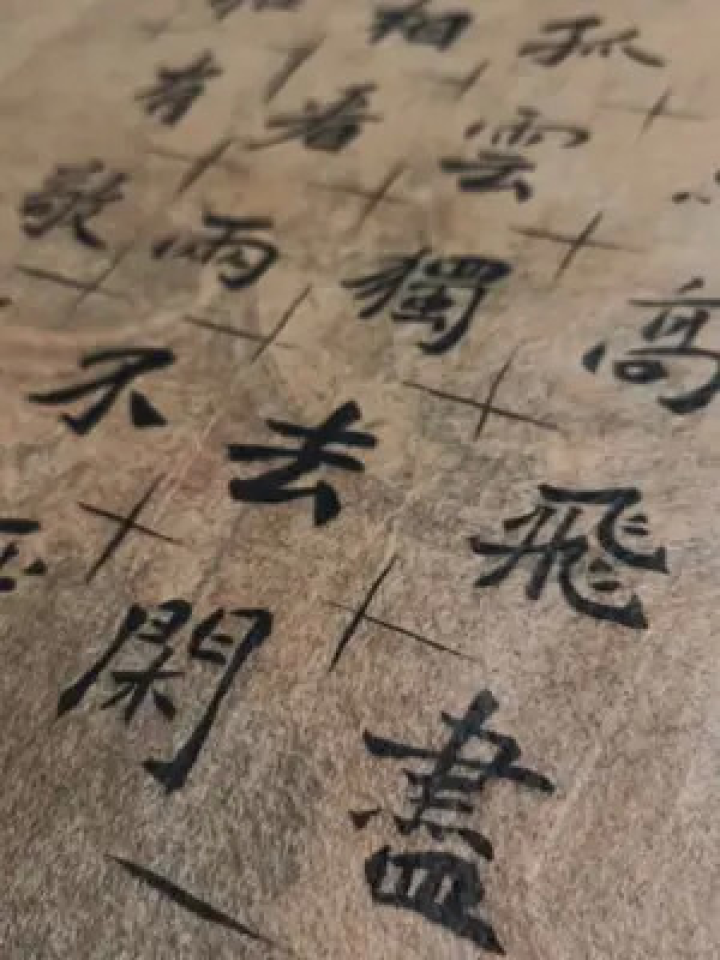 高飛盡
孤雲獨去閑
相看兩不
有敬